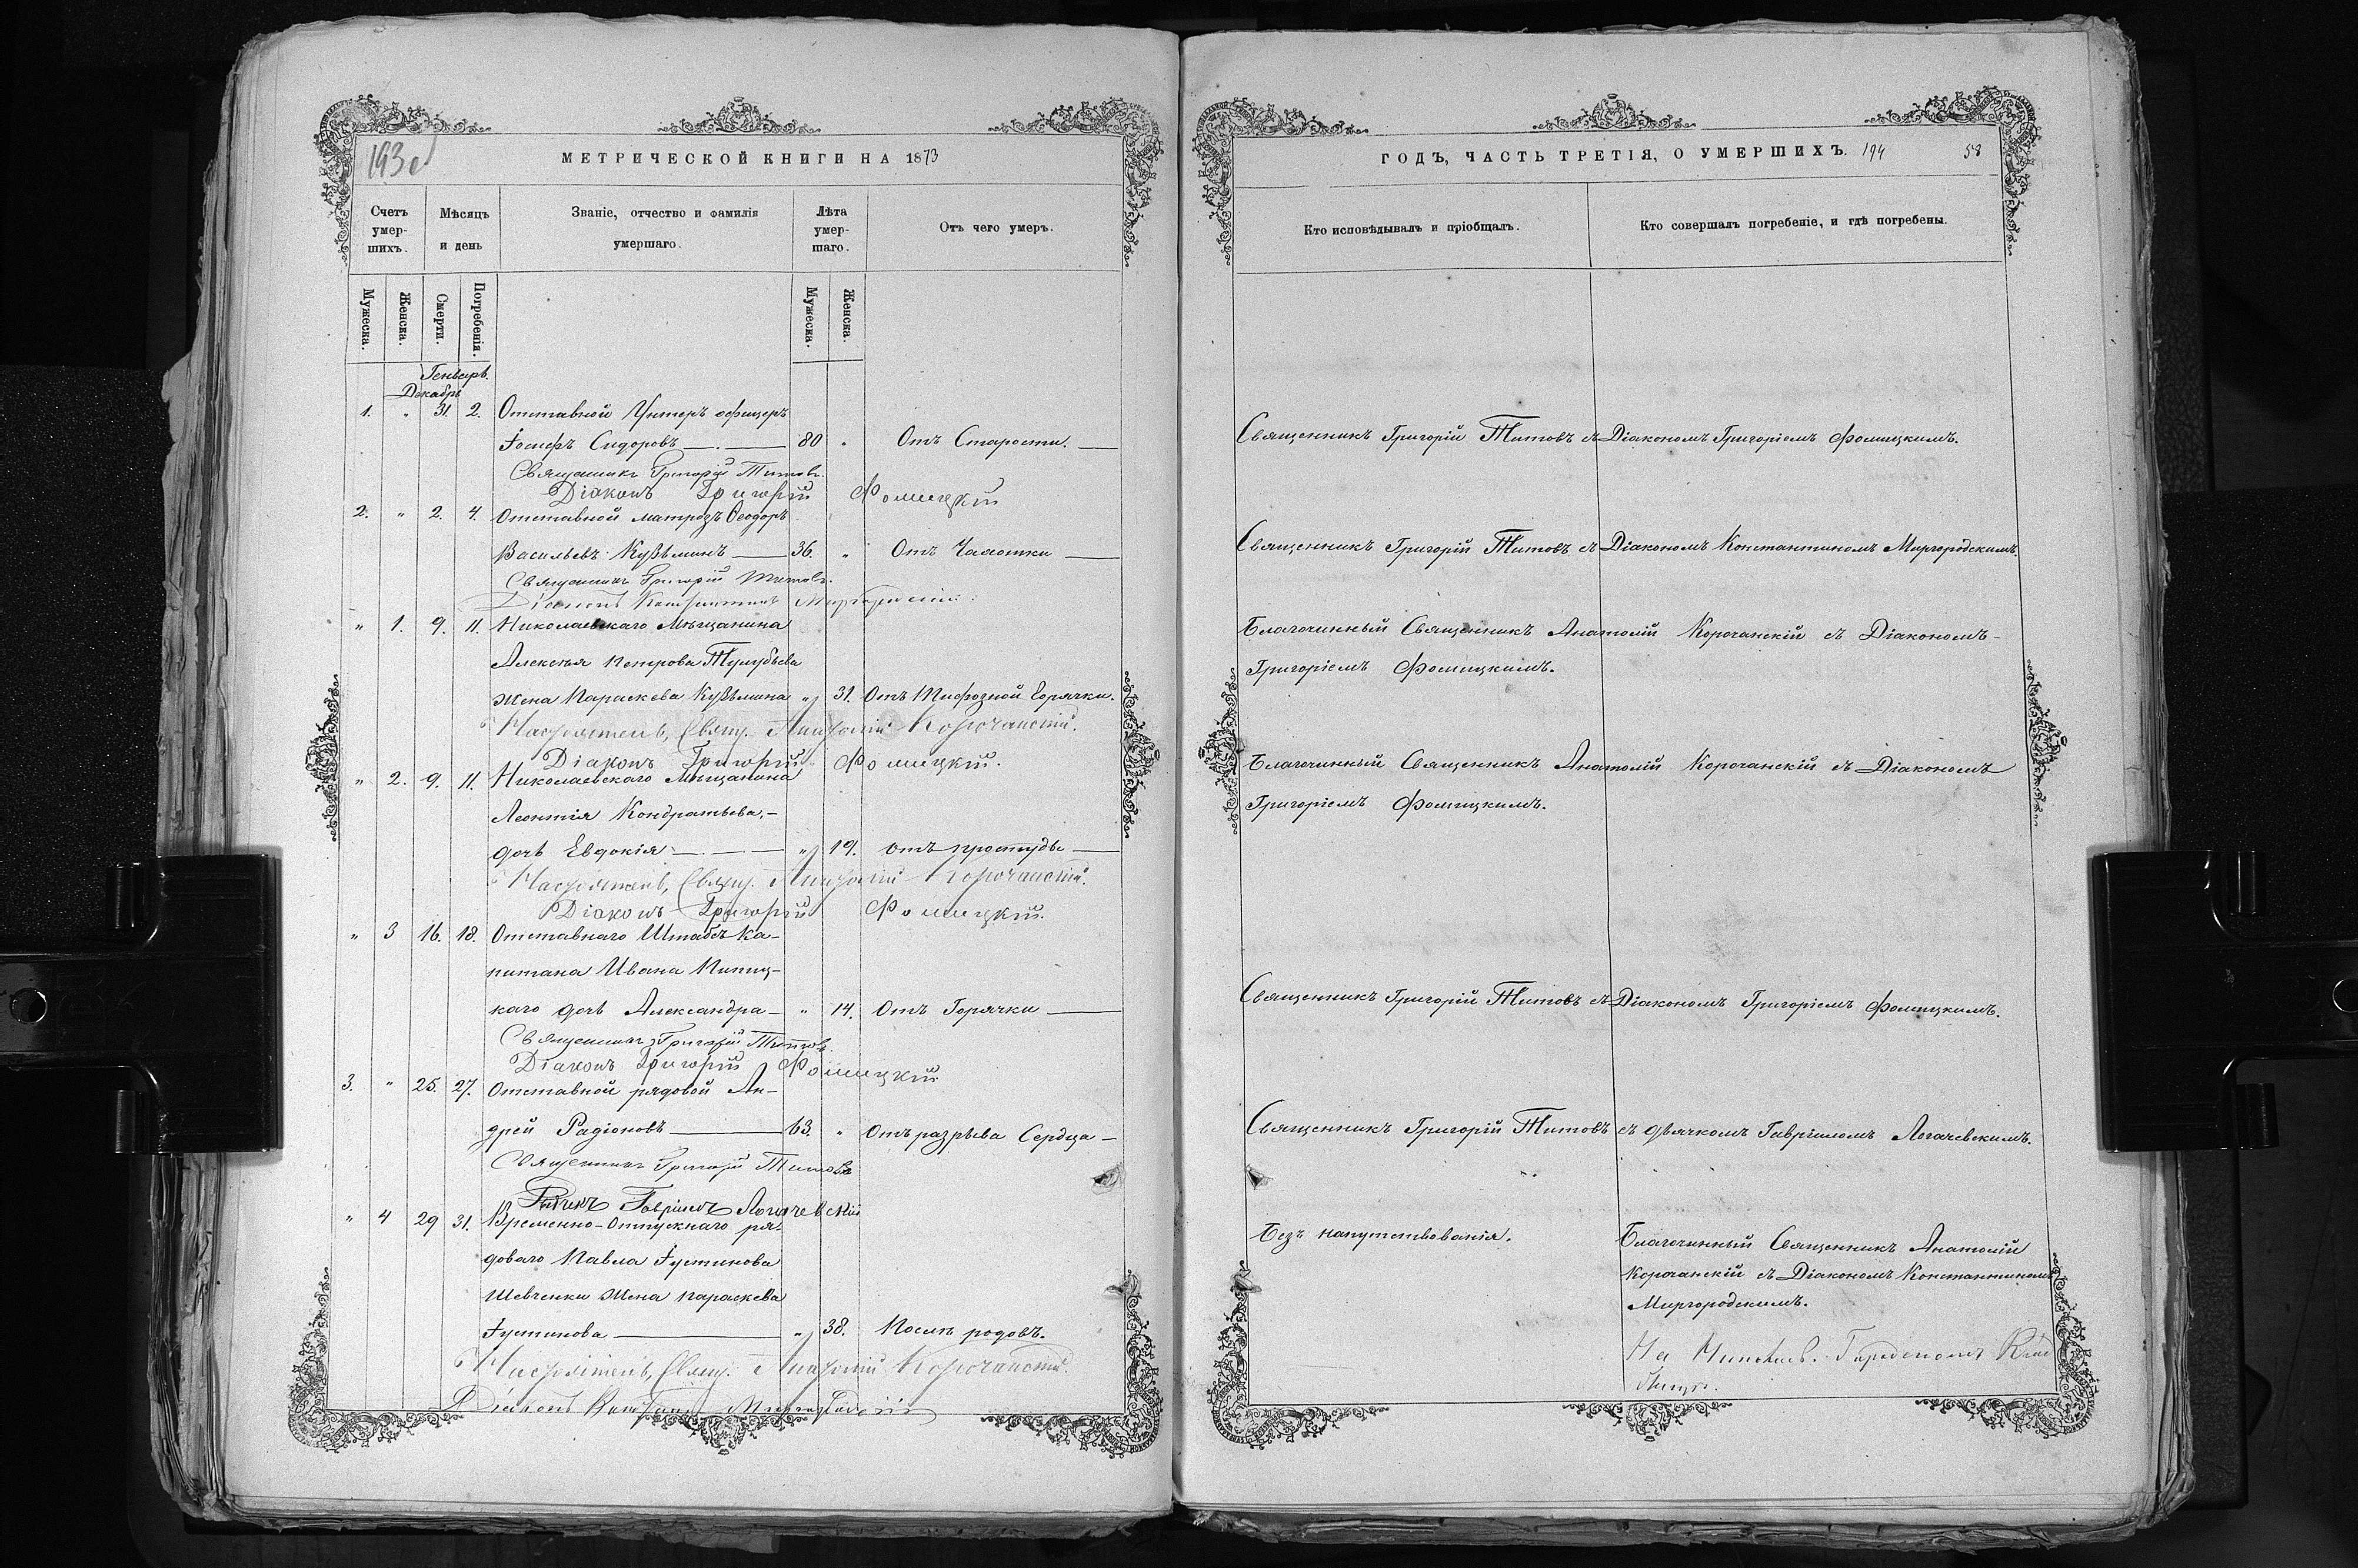 193
МЕТРИЧЕСКОЙ КНИГИ НА 1873
Счетъ умер-шихъ.
Мѣсяцъ и день
Званіе, отчество и фамилія умершаго.
Лѣта умер-шаго.
Отъ чего умеръ.
Мужеска.
Женска.
Смерти.
Погребенія.
Мужеска.
Женска.
Генварь.
Декабрь
1. " 31. 2. Отставной Унтеръ офицеръ
Іосифъ Сидоровъ 80 " Отъ Старости.
Священникъ Григорій Титовъ.
Діаконъ Григорій Фомицкій
2. " 2. 4. Отставной матрозъ Ѳеодоръ
Васильевъ Кузьминъ 36. " Отъ Чахотки
Священникъ Григорій Титовъ.
Діаконъ Константинъ Миргородскій
" 1. 9. 11. Николаевскаго Мѣщанина
Алексѣя Петрова Тулубьева
жена Параскева Кузьмина " 31. Отъ Тифозной Горячки.
Настоятель, Свящ. Анатолій Корочанскій.
Діаконъ Григорій Фомицкій.
" 2. 9. 11. Николаевскаго Мѣщанина
Леонтія Кондратьева,
дочь Евдокія " 19. отъ простуды
Настоятель, Свящ. Анатолій Корочанскій.
Діаконъ Григорій Фомицкій.
" 3 16. 18. Отставнаго Штабсъ Ка-
питана Ивана
каго дочь Александра " 14. Отъ Горячки
Священникъ Григорій Титовъ
Діаконъ Григорій Фомицкій
3. " 25. 27. Отставной рядовой Ан-
дрей Радіоновъ 63. " Отъ разрыва Сердца
Священникъ Григорій Титовъ
Гавріилъ Логачевскій
" 4 29 31. Временно-Отпускнаго ря-
доваго Павла Іустинова
Шевченки Жена параскева
Іустинова " 38. Послѣ родовъ.
Настоятель, Свящ. Анатолій Корочанскій.
Діаконъ Константинъ Миргородскій
ГОДЪ, ЧАСТЬ ТРЕТІЯ, О УМЕРШИХЪ. 194 58
Кто исповѣдывалъ и пріобщалъ.
Кто совершалъ погребеніе, и гдѣ погребены.
Священникъ Григорій Титовъ съ Діакономъ Григоріемъ Фомицкимъ.
Священникъ Григорій Титовъ съ Діакономъ Константиномъ Миргородскимъ.
Благочинный Священникъ Анатолій Корочанскій съ Діакономъ
Григоріемъ Фомицкимъ.
Благочинный Священникъ Анатолій Корочанскій съ Діакономъ
Григоріемъ Фомицкимъ.
Священникъ Григорій Титовъ съ Діакономъ Григоріемъ Фомицкимъ.
Священникъ Григорій Титовъ съ дьячкомъ Гавріиломъ Логачевскимъ.
Безъ напутствованія.
Благочинный Священникъ Анатолій
Корочанскій съ Діакономъ Константиномъ
Миргородскимъ.
На Николаев. Городскомъ Клад
бищѣ.